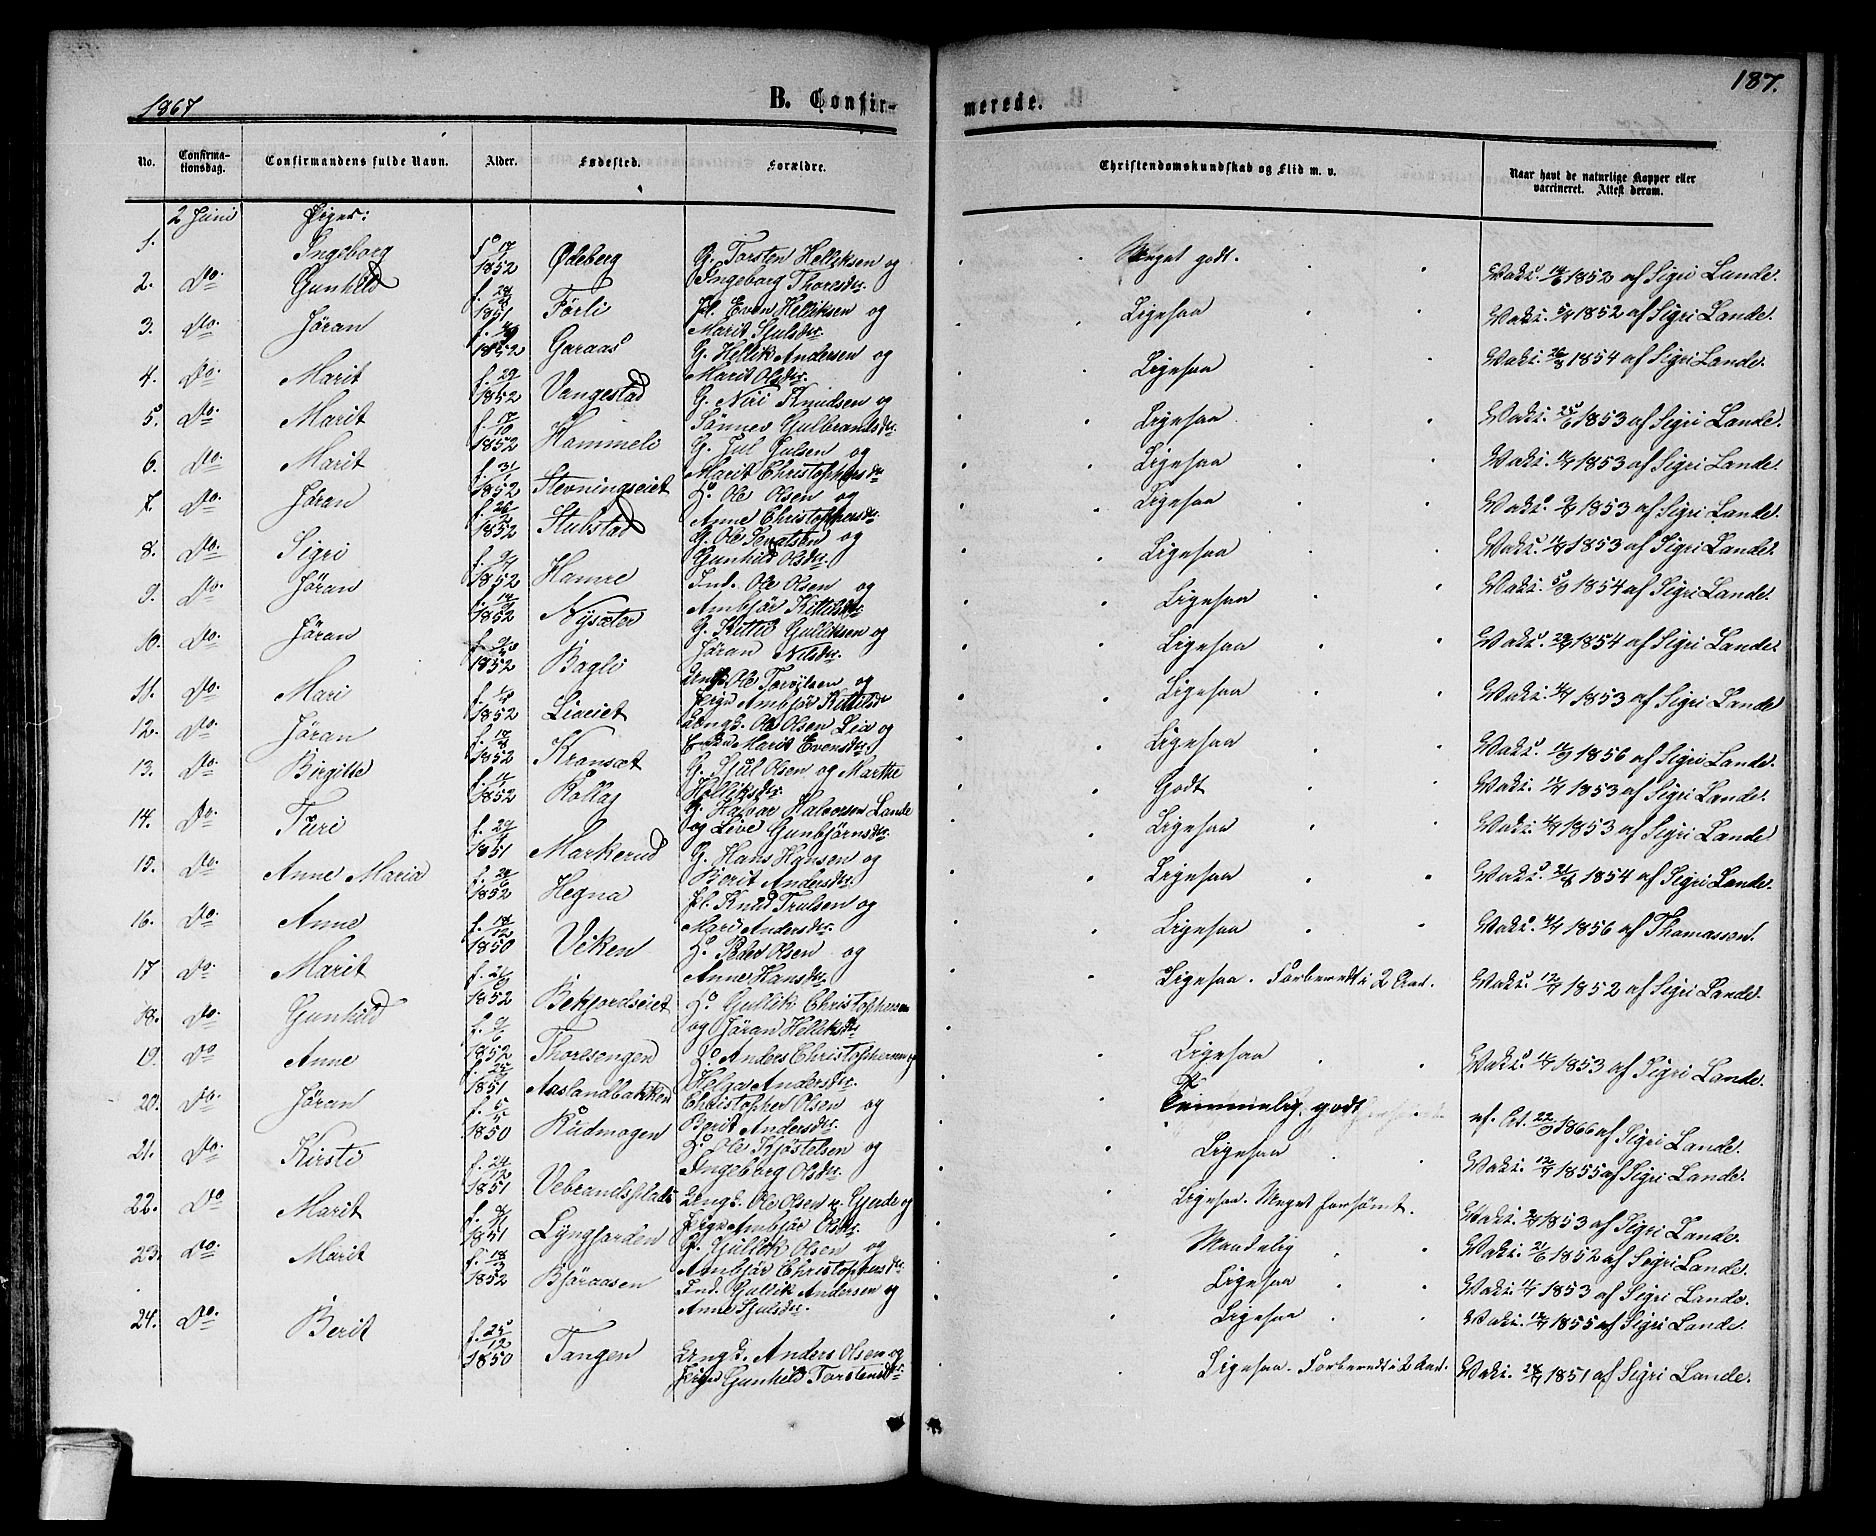 187.
1867
B. Confir-
merede.
No.
Confirma-
tionsdag.
Confirmandens fulde Navn.
Alder.
Fødested.
Forældre.
Christendomskundskab og Flid m. v.
Naar havt de naturlige Kopper eller
vaccineret. Attest derom.
2 Juni Piger:
1. Ingeborg 1852 Ødeberg G. Torsten Helliksen og Ingeborg Thoresdr. Meget godt. Vaks. 1852 af Sigri Lande.
2. Do. Gunhild 1851 Førli Even Helliksen og Marit Sjulsdr. Ligesaa Vaks. 1852 af Sigri Lande.
3. Do. Jøran 1852 Garaas G. Hellik Andersen og Marit Olsdr. Ligesaa Vaks. 1854 af Sigri Lande.
4. Do. Marit 1852 Vangestad G. Niri Knudsen og Sønnev Gulbrandsdr. Ligesaa Vaks. 1853 af Sigri Lande.
5. Do. Marit f. 17/10 1852 Hammeli G. Jul Julsen og Marit Christophersdr. Ligesaa Vaks. 1853 af Sigri Lande.
6. Do. Marit 1852 Stevningseiet H. Ole Olsen og Anne Christophersdr. Ligesaa Vaks. 1853 af Sigri Lande.
7. Do. Jøran 1852 Stubstad G. Ole og Gunhild Olsdr. Ligesaa Vaks. 1853 af Sigri Lande.
8. Do. Sigri 1852 Hamre Ind. Ole Olsen og Ambjør Kittilsdr. Ligesaa Vaks. 1854 af Sigri Lande.
9. Do. Jøran 1852 Nysæter G. Kittil Gulliksen og Jøran Nilsdr. Ligesaa Vaks. 1854 af Sigri Lande.
10. Do. Jøran 1852 Bagli Ungk. Ole og Pige Ambjør Kittilsdr Ligesaa Vaks. 1853 af Sigri Lande
11. Do. Mari 1852 Liaeiet Ungk. Ole Olsen Lia og Marit Evensdr. Ligesaa Vaks. 1856 af Sigri Lande.
12. Do. Jøran 1852 Kransæt G. Jul Olsen og Marthe Helliksdr. Godt Vaks. 1853 af Sigri Lande.
13. Do. Birgitte 1852 Rollag G. Halvor Halvorsen Lande og Live Gunbjørnsdr. Ligesaa Vaks. 1853 af Sigri Lande
14. Do. Turi 1851 Markerud G. Hans Hansen og Berit Andersdr. Ligesaa Vaks. 1854 af Sigri Lande.
15. Do. Anne Maria 1852 Hegna Knud Trulsen og Mari Andersdr. Ligesaa Vaks. 1856 af Thomasson.
16. Do. Anne f. 18/12 1850 Viken H. Peder Olsen og Anne Hansdr. Ligesaa. Forberedt i 2 Aar. Vaks. 1852 af Sigri Lande.
17 Do. Marit 1852 Bekjordseiet H. Gullik Christophersen og Jøran Helliksdr Ligesaa Vaks. 1853 af Sigri Lande.
18. Do. Gunhild 1852 Thoresengen H. Anders Christophersen og Helga Andersdr. Temmelig godt 22/9 1866 af Sigri Lande.
19. Do Anne 1851 Aaslandbakken Christopher Olsen og Berit Andersdr. Ligesaa Vaks. 1855 af Sigri Lande.
20. Do. Jøran f. 5/5 1850 Rudmogen H. Ole Kjøstelsen og Ingeborg Olsdr. Ligesaa. Meget forsømt. Vaks. 1853 af Sigri Lande.
21. Do. Kirsti f. 24/12 1851 Vebrandsplads Ungk. Ole Olsen og Pige Ambjør Olsdr. Maadelig Vaks. 1852 af Sigri Lande.
22. Do Marit 1851 Lyngjorden G. Gullik Olsen og Ambjør Christophersdr. Ligesaa Vaks. 1853 af Sigri Lande.
23. Do. Marit f. 18/3 1852 Bjøraasen Ind. Gullik Andersen og Anne Sjulsdr. Ligesaa Vaks. 1855 af Sigri Lande.
24. Do. Berit f. 25/12 1850 Tangen Ungk. Anders Olsen og Pige Gunhild Torstensdr. Ligesaa. Forberedt i 2 Aar. Vaks. 1851 af Sigri Lande.